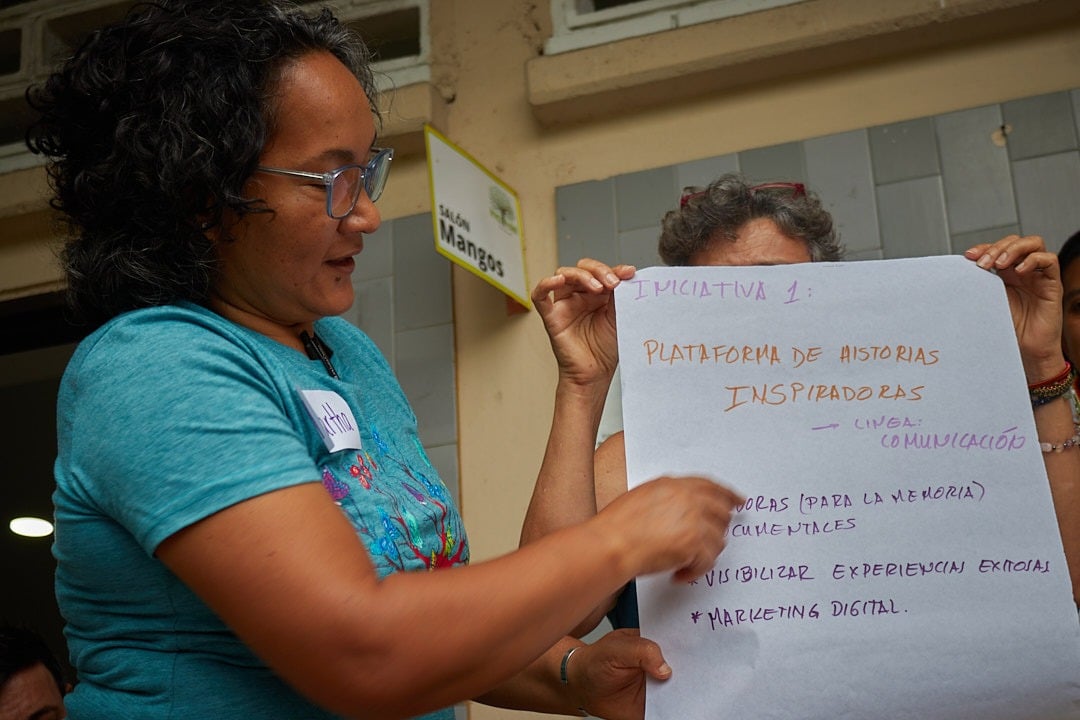 SALÓN
Mangos
INICIATIVA 1:
PLATAFORMA DE HISTORIAS
INSPIRADORAS
→ LINEA:
COMUNICACIÓN
(PARA LA MEMORIA)
* VISIBILIZAR EXPERIENCIAS EXITOSAS
* MARKETING DIGITAL.